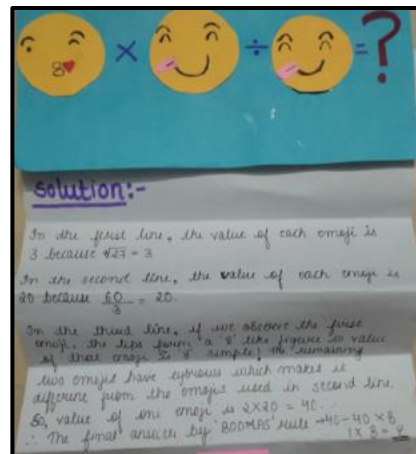 8 × ÷ = ?
solution:-
In the first line, the value of each emoji is
3 because ∛27 = 3
In the second line, the value of each emoji is
20 because 60/3 = 20.
In the third line, if we observe the first
emoji, the lips form a '8' like figure so value
of that emoji is '8' simple! the remaining
two emojis have eyebrows which makes it
different from the emojis used in second line.
So, value of one emoji is 2×20 = 40.
∴ The final answer by 'BODMAS' rule →40÷40 × 8
1 × 8 = 8